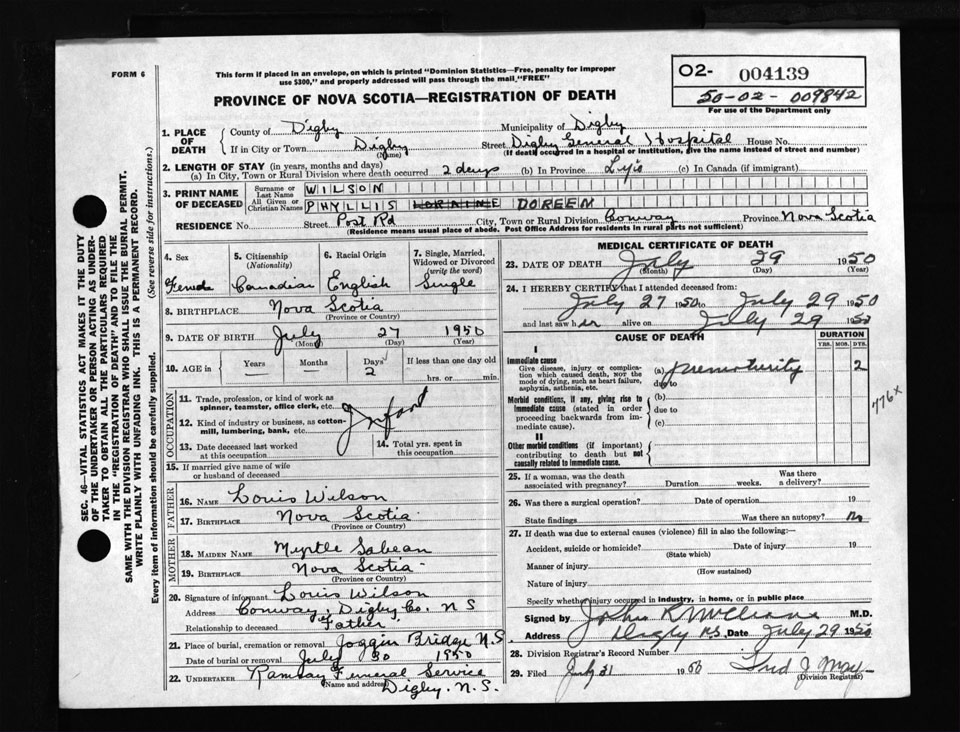 FORM 6
This form if placed in an envelope, on which is printed "Dominion Statistics—Free, penalty for improper
use $300," and properly addressed will pass through the mail, "FREE"
PROVINCE OF NOVA SCOTIA—REGISTRATION OF DEATH
O2- 004139
50-02-009842
For use of the Department only
1. PLACE OF DEATH
County of Digby Municipality of Digby
If in City or Town Digby Street Digby General Hospital House No.
(Name) (If death occurred in a hospital or institution, give the name instead of street and number)
2. LENGTH OF STAY (in years, months and days)
(a) In City, Town or Rural Division where death occurred 2 days (b) In Province Life (c) In Canada (if immigrant)
3. PRINT NAME OF DECEASED
Surname or Last Name WILSON
All Given or Christian Names PHYLLIS LORAINE DOREEN
RESIDENCE No. Street Post Rd City, Town or Rural Division Conway Province Nova Scotia
(Residence means usual place of abode. Post Office Address for residents in rural parts not sufficient)
SEC. 46—VITAL STATISTICS ACT MAKES IT THE DUTY
OF THE UNDERTAKER OR PERSON ACTING AS UNDER-
TAKER TO OBTAIN ALL THE PARTICULARS REQUIRED
IN THE "REGISTRATION OF DEATH" AND TO FILE THE
SAME WITH THE DIVISION REGISTRAR WHO SHALL ISSUE THE BURIAL PERMIT.
WRITE PLAINLY WITH UNFADING INK. THIS IS A PERMANENT RECORD.
Every item of information should be carefully supplied. (See reverse side for instructions.)
4. Sex
Female
5. Citizenship
(Nationality)
Canadian
6. Racial Origin
English
7. Single, Married,
Widowed or Divorced
(write the word)
Single
8. BIRTHPLACE Nova Scotia
(Province or Country)
9. DATE OF BIRTH July 27 1950
(Month) (Day) (Year)
10. AGE in Years — Months — Days 2 If less than one day old
hrs. or min.
OCCUPATION
11. Trade, profession, or kind of work as
spinner, teamster, office clerk, etc.
Infant
12. Kind of industry or business, as cotton-
mill, lumbering, bank, etc.
13. Date deceased last worked
at this occupation
14. Total yrs. spent in
this occupation
15. If married give name of wife
or husband of deceased
FATHER
16. NAME Louis Wilson
17. BIRTHPLACE Nova Scotia
(Province or Country)
MOTHER
18. MAIDEN NAME Myrtle Sabean
19. BIRTHPLACE Nova Scotia
(Province or Country)
20. Signature of informant Louis Wilson
Address Conway, Digby Co. N S
Relationship to deceased Father
21. Place of burial, cremation or removal Joggin Bridge N.S
Date of burial or removal July 30 1950
22. UNDERTAKER Ramsay Funeral Service
(Name and address) Digby. N. S.
MEDICAL CERTIFICATE OF DEATH
23. DATE OF DEATH July 29 1950
(Month) (Day) (Year)
24. I HEREBY CERTIFY that I attended deceased from:
July 27 1950 to July 29 1950
and last saw her alive on July 29 1950
CAUSE OF DEATH
DURATION
YRS. MOS. DYS.
I
Immediate cause
Give disease, injury or complica-
tion which caused death, NOT the
mode of dying, such as heart failure,
asphyxia, asthenia, etc.
(a) prematurity 2
due to
776X
Morbid conditions, if any, giving rise to
immediate cause (stated in order
proceeding backwards from im-
mediate cause).
(b)
due to
(c)
II
Other morbid conditions (if important)
contributing to death but not
causally related to immediate cause.
25. If a woman, was the death
associated with pregnancy? Duration weeks. Was there
a delivery?
26. Was there a surgical operation? Date of operation 19
State findings Was there an autopsy? no
27. If death was due to external causes (violence) fill in also the following:—
Accident, suicide or homicide? Date of injury 19
(State which)
Manner of injury
(How sustained)
Nature of injury
Specify whether injury occurred in industry, in home, or in public place
Signed by John R McCleave M.D.
Address Digby NS Date July 29 1950
28. Division Registrar's Record Number
29. Filed July 31 1950 Fred J May
(Division Registrar)